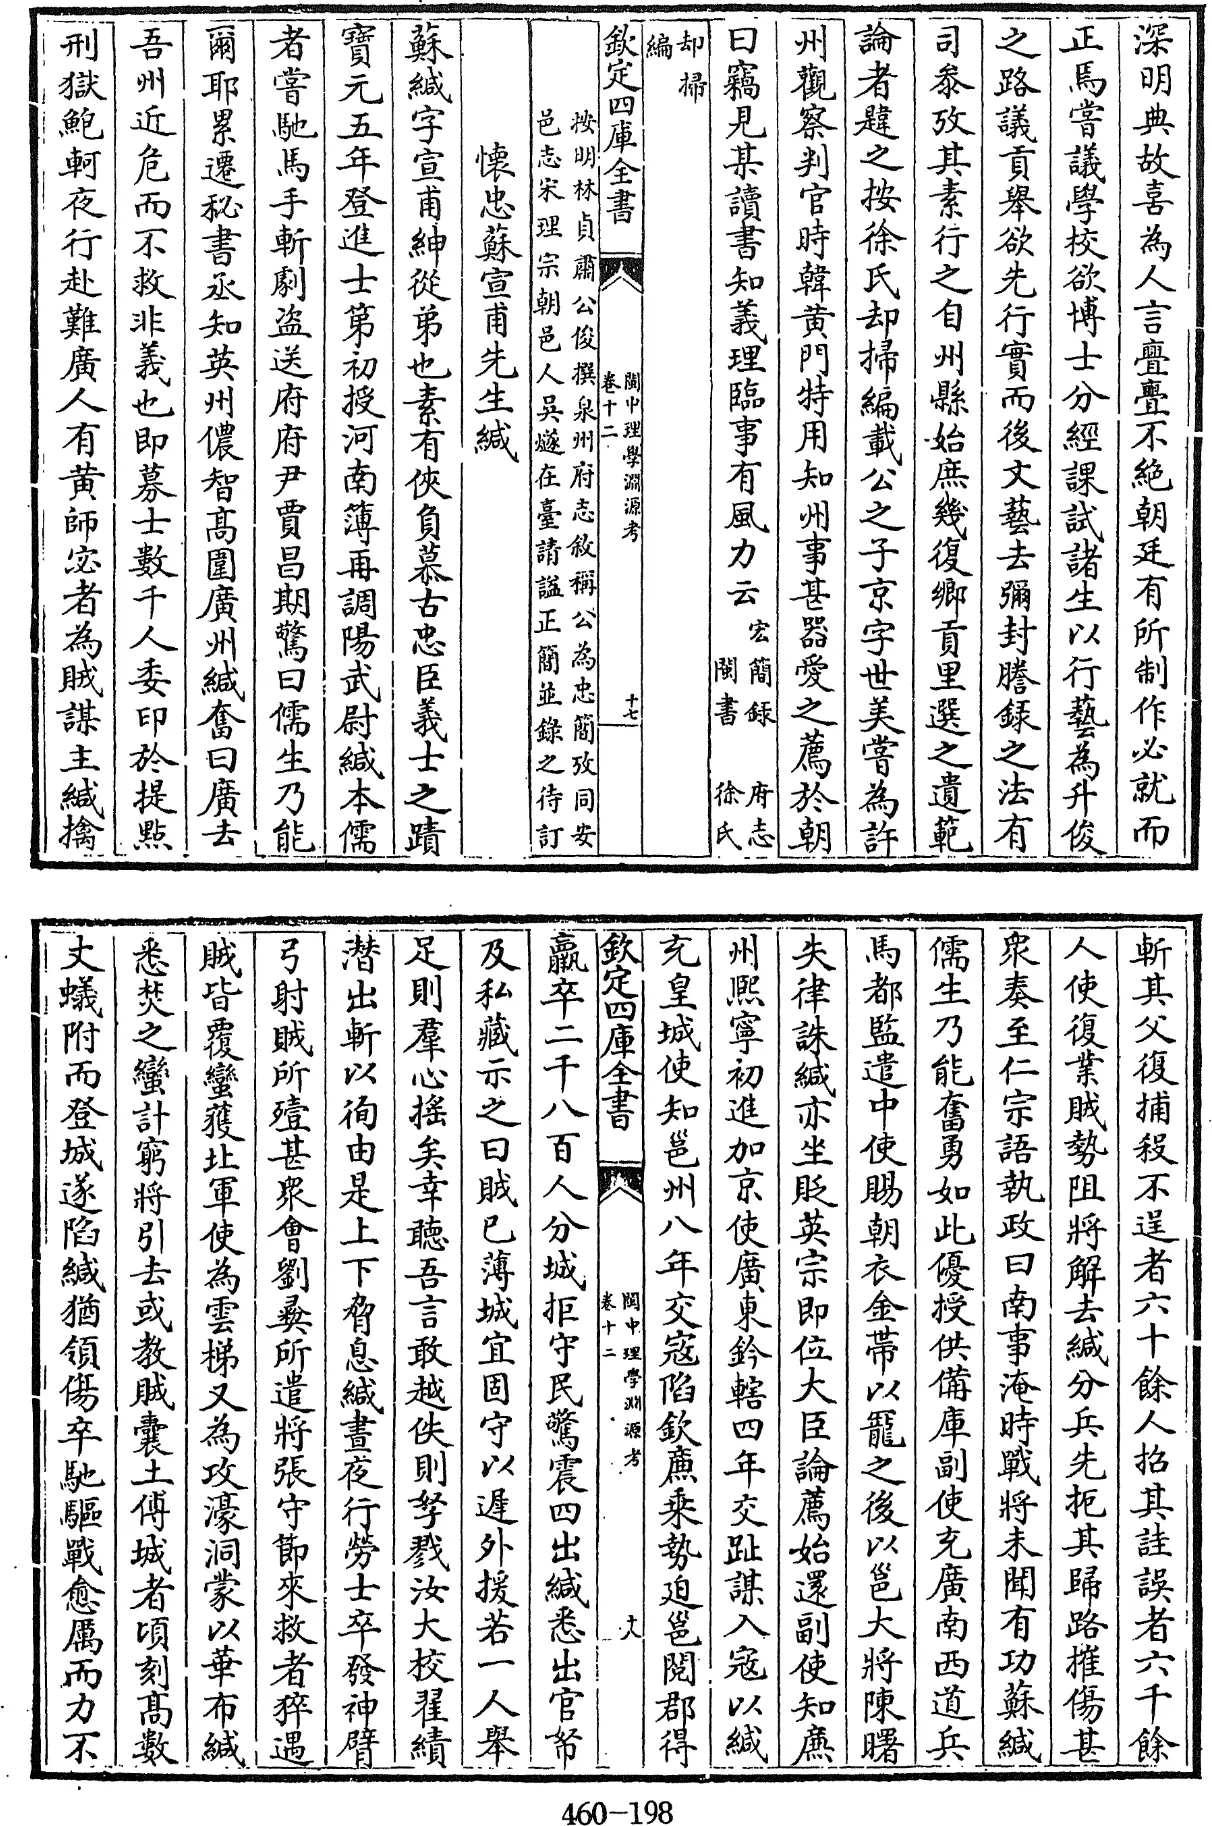 深明典故喜為人言亹亹不絶朝廷有所制作必就而
正焉嘗議學校欲博士分經課試諸生以行藝為升俊
之路議貢舉欲先行實而後文藝去彌封謄錄之法有
司叅攷其素行之自州縣始庶幾復鄉貢里選之遺範
論者韙之按徐氏却掃編載公之子京字世美嘗為許
州觀察判官時韓黄門特用知州事甚器愛之薦於朝
曰竊見某讀書知義理臨事有風力云宏簡錄 府志
閩書 徐氏
却掃
編
欽定四庫全書
閩中理學淵源考
卷十二
十七
按明林貞肅公俊撰泉州府志敘稱公為忠簡攷同安
邑志宋理宗朝邑人吳燧在臺請謚正簡並錄之待訂
懷忠蘇宣甫先生緘
蘇緘字宣甫紳從弟也素有俠負慕古忠臣義士之蹟
寶元五年登進士第初授河南簿再調陽武尉緘本儒
者嘗馳馬手斬劇盗送府府尹賈昌期驚曰儒生乃能
爾耶累遷秘書丞知英州儂智高圍廣州緘奮曰廣去
吾州近危而不救非義也即募士數千人委印於提點
刑獄鮑軻夜行赴難廣人有黄師宓者為賊謀主緘擒
斬其父復捕殺不逞者六十餘人招其詿誤者六千餘
人使復業賊勢阻將解去緘分兵先扼其歸路摧傷甚
衆奏至仁宗語執政曰南事淹時戰將未聞有功蘇緘
儒生乃能奮勇如此優授供備庫副使充廣南西道兵
馬都監遣中使賜朝衣金帶以寵之後以邕大將陳曙
失律誅緘亦坐貶英宗即位大臣論薦始還副使知廉
州熙寧初進加京使廣東鈐轄四年交趾謀入寇以緘
充皇城使知邕州八年交寇陷欽廉乘勢迫邕閲郡得
欽定四庫全書
閩中理學淵源考
卷十二
十八
羸卒二千八百人分城拒守民驚震四出緘悉出官帑
及私藏示之曰賊已薄城宜固守以遲外援若一人舉
足則羣心揺矣幸聽吾言敢越佚則孥戮汝大校翟績
潛出斬以徇由是上下脅息緘晝夜行勞士卒發神臂
弓射賊所殪甚衆會劉彝所遣將張守節來救者猝遇
賊皆覆蠻獲北軍使為雲梯又為攻濠洞蒙以華布緘
悉焚之蠻計窮將引去或教賊囊土傅城者頃刻高數
丈蟻附而登城遂陷緘猶領傷卒馳驅戰愈厲而力不
460-198